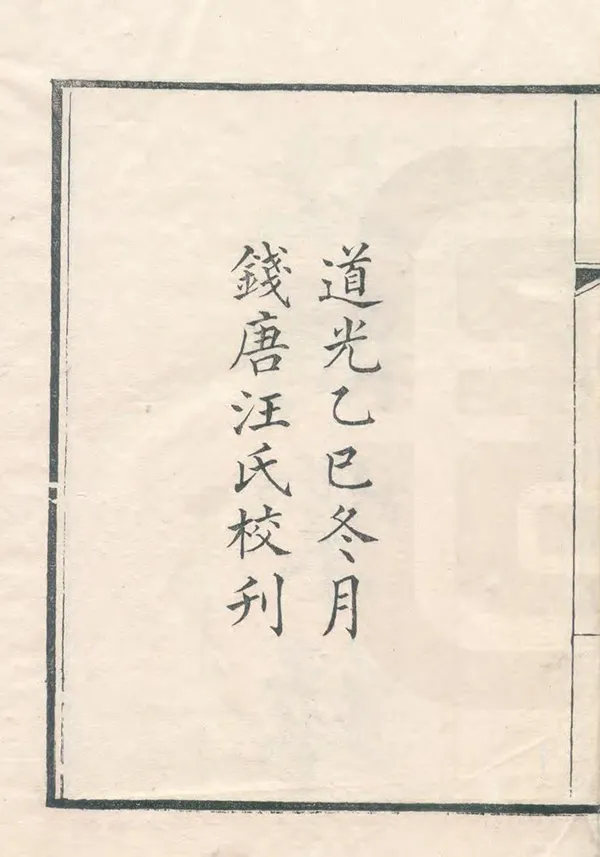 道光乙巳冬月
錢唐汪氏校刋